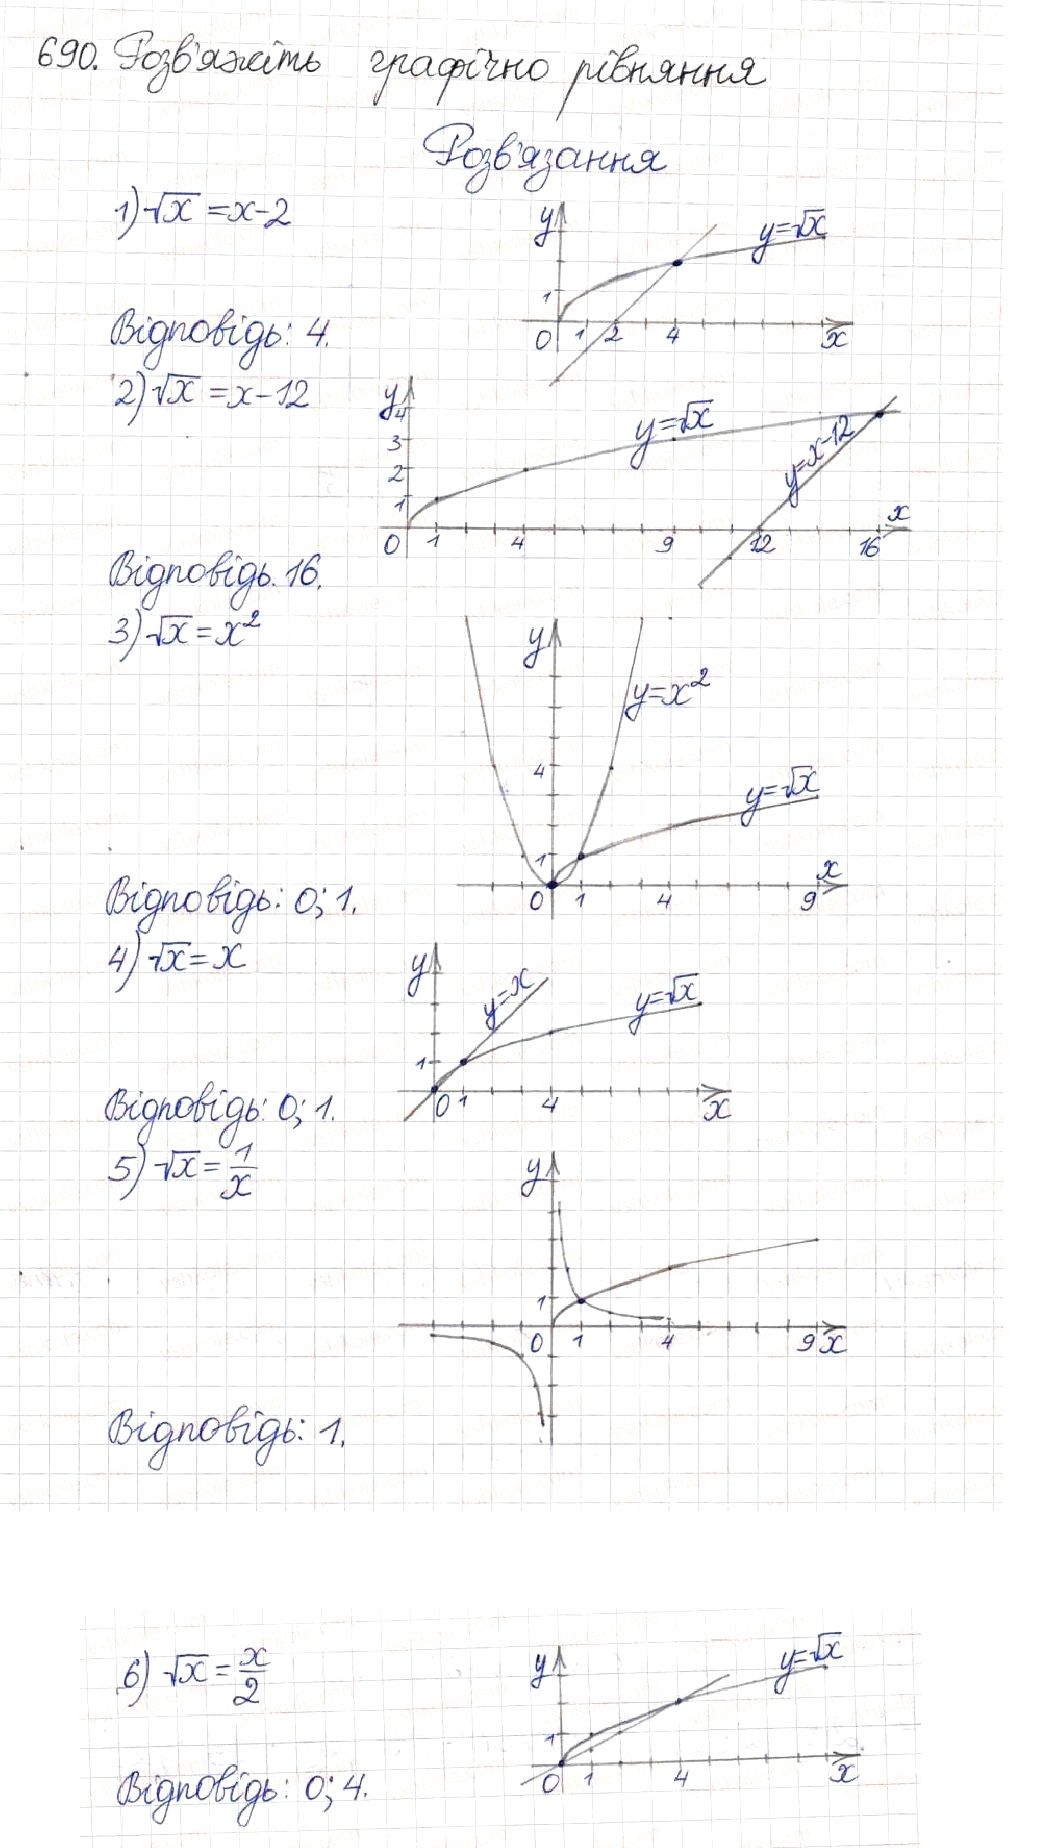 690. Розв'яжіть графічно рівняння
Розв'язання
1) √x = x-2
y
y=√x
1
0 1 2 4 x
Відповідь: 4.
2) √x = x-12
y
4
y=√x
3
y=x-12
2
1
x
0 1 4 9 12 16
Відповідь. 16.
3) √x = x²
y
y=x²
4
y=√x
1
x
0 1 4 9
Відповідь: 0; 1.
4) √x = x
y
y=x
y=√x
1
0 1 4 x
Відповідь: 0; 1.
5) √x = 1/x
y
1
0 1 4 9 x
Відповідь: 1.
6) √x = x/2
y
y=√x
1
0 1 4 x
Відповідь: 0; 4.